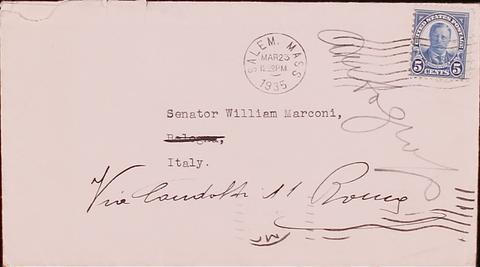 SALEM. MASS
MAR 23
1935
UNITED STATES POSTAGE
5 CENTS 5
Senator William Marconi,
Bologna,
Italy.
Via Condotti 11 Roma